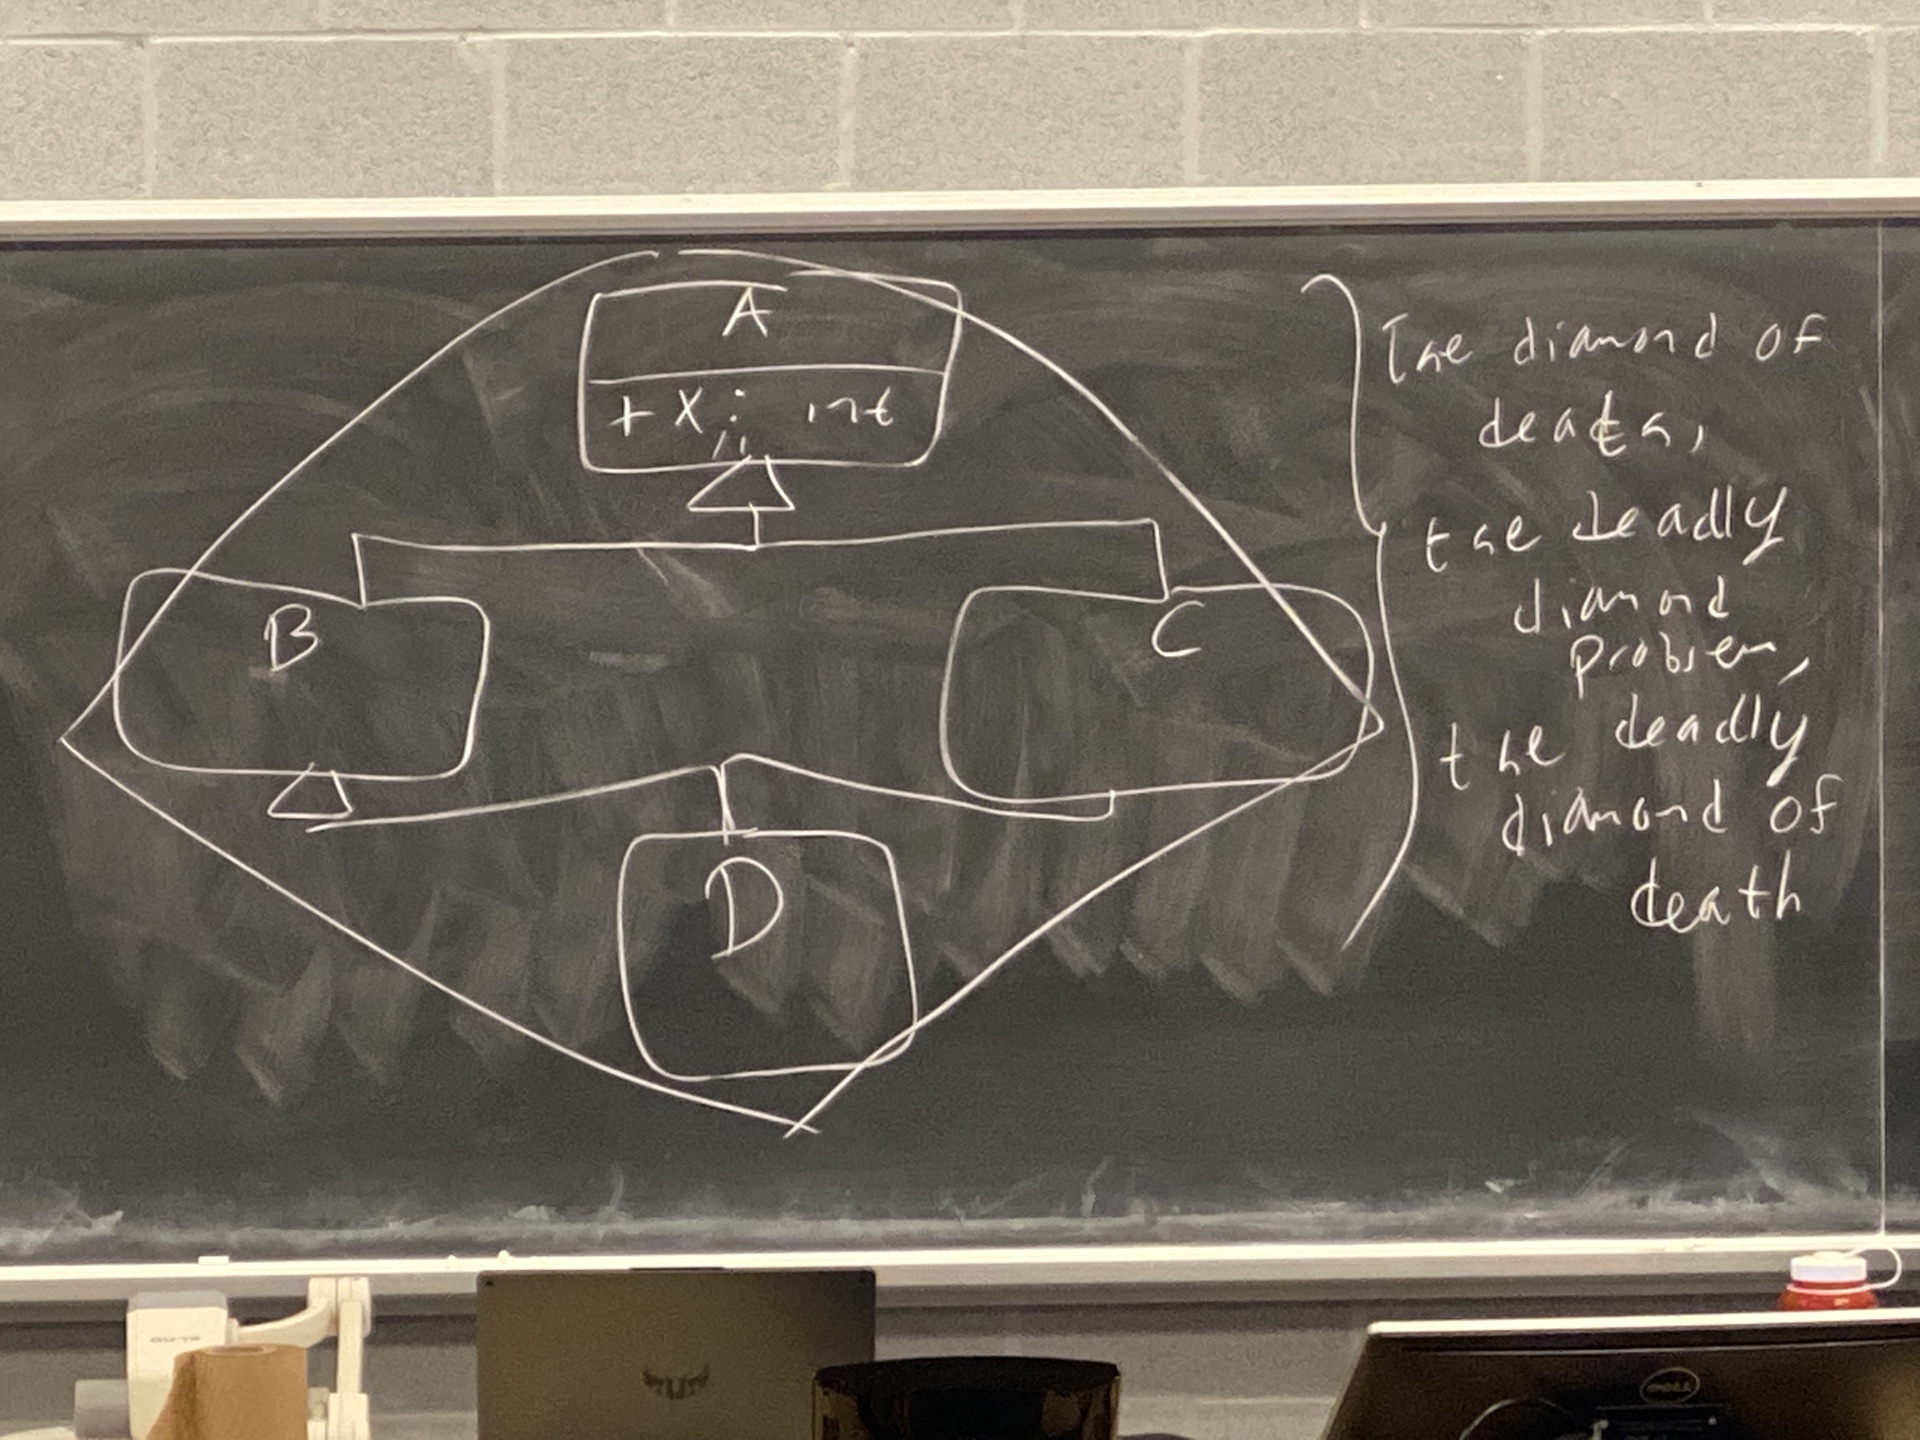 A
+ x : int
B
C
D
The diamond of
death,
the deadly
diamond
problem,
the deadly
diamond of
death
DELL